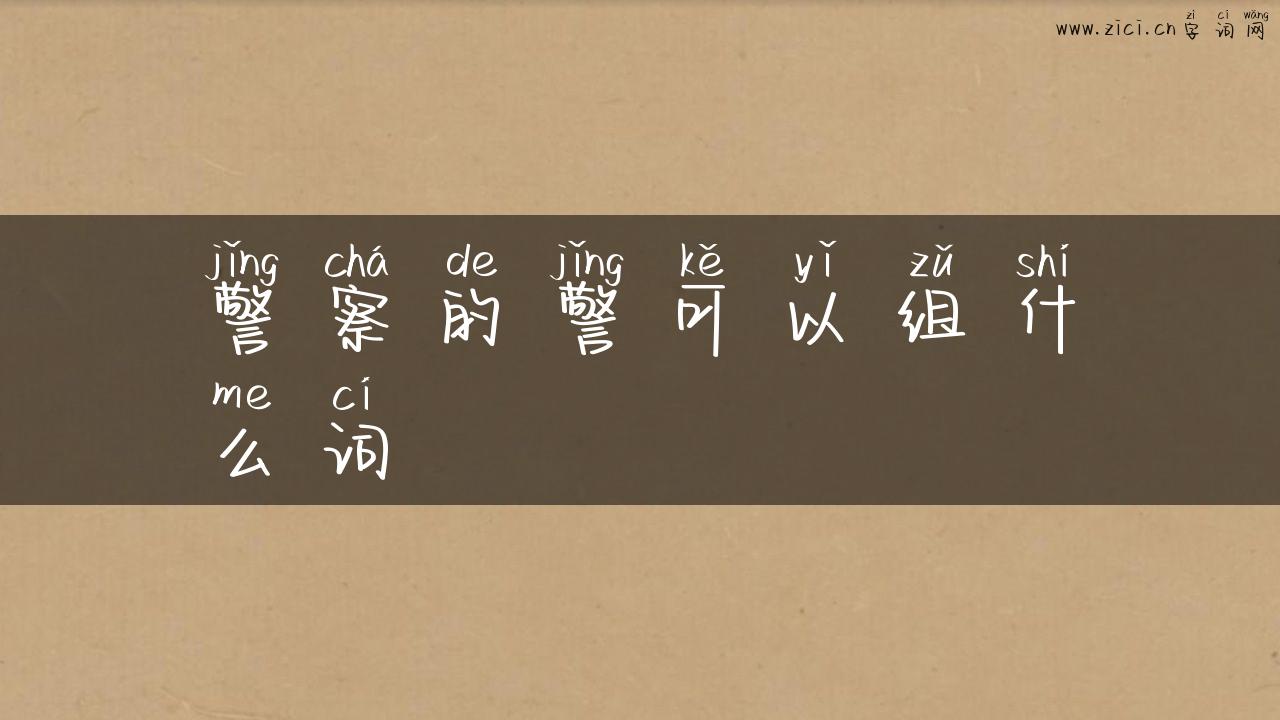 zì cí wǎng
www.zici.cn 字词网
jǐng chá de jǐng kě yǐ zǔ shí
警察的警可以组什
me cí
么词